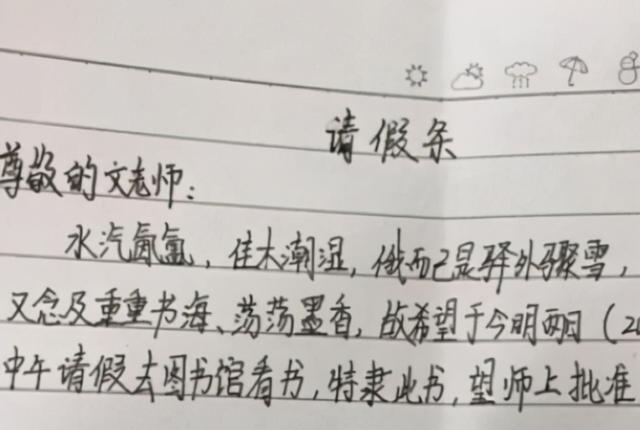 请假条
尊敬的文老师：
水汽氤氲，佳木潮湿，俄而已是驿外骤雪，
又念及重重书海、荡荡墨香，故希望于今明两日（20
中午请假去图书馆看书，特隶此书，望师上批准